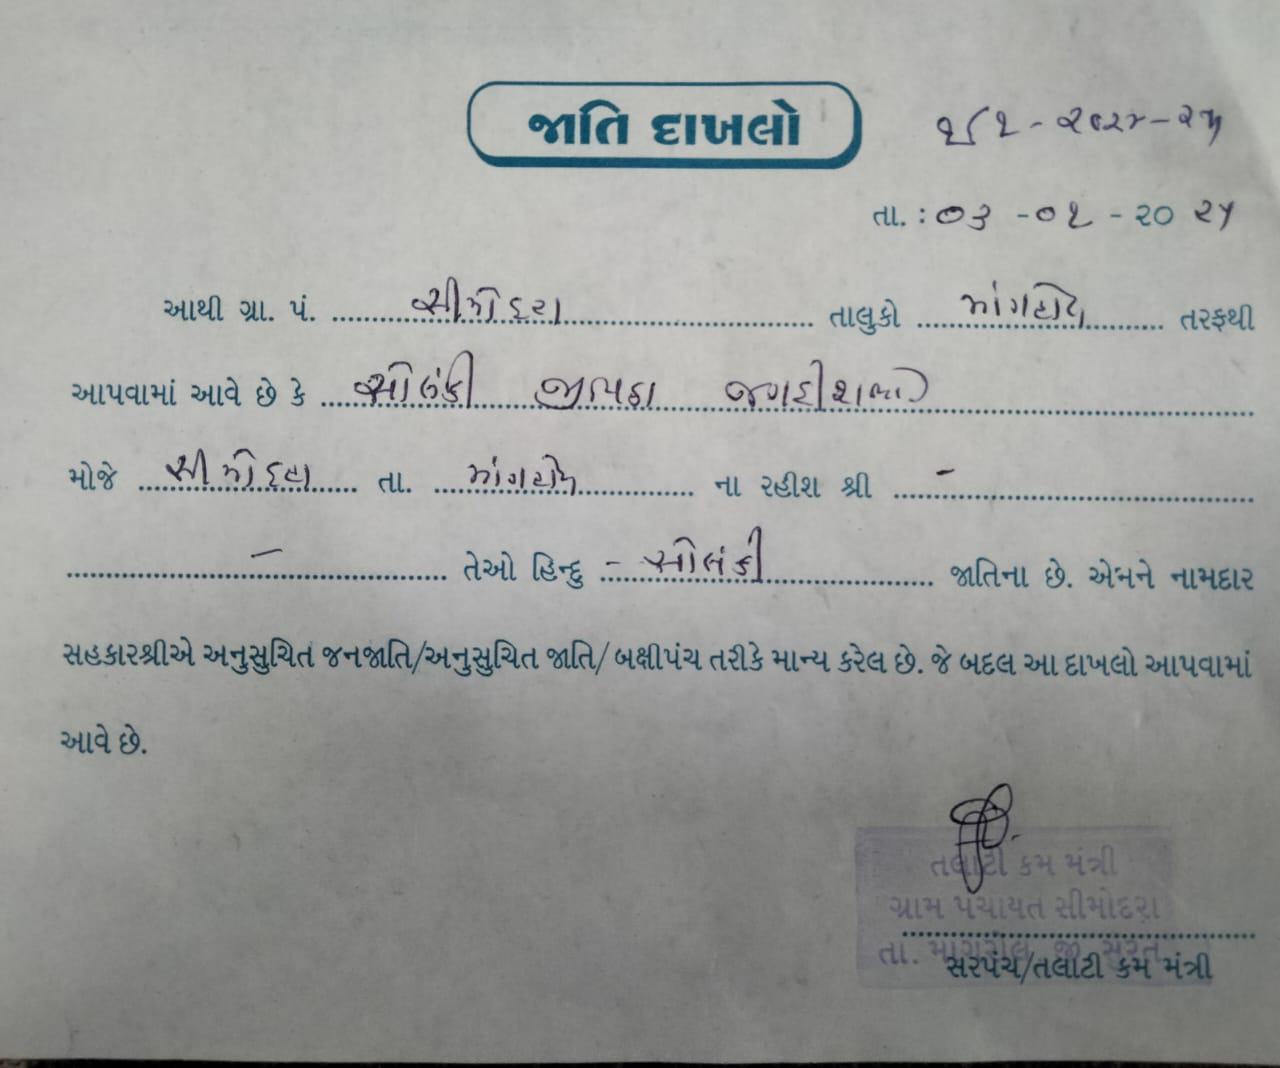 જાતિ દાખલો
૨૦૨૪-૨૫
તા. : ૦૩ -૦૧ - ૨૦ ૨૫
આથી ગ્રા. પં. સીમોદરા તાલુકો માંગરોળ તરફથી
આપવામાં આવે છે કે સોલંકી જગદીશભાઈ
મોજે સીમોદરા તા. માંગરોળ ના રહીશ શ્રી -
- તેઓ હિન્દુ - સોલંકી જાતિના છે. એમને નામદાર
સહકારશ્રીએ અનુસુચિત જનજાતિ/અનુસુચિત જાતિ/ બક્ષીપંચ તરીકે માન્ય કરેલ છે. જે બદલ આ દાખલો આપવામાં
આવે છે.
તલાટી કમ મંત્રી
ગ્રામ પંચાયત સીમોદરા
તા. માંગરોલ, જી સુરત
સરપંચ/તલાટી કમ મંત્રી